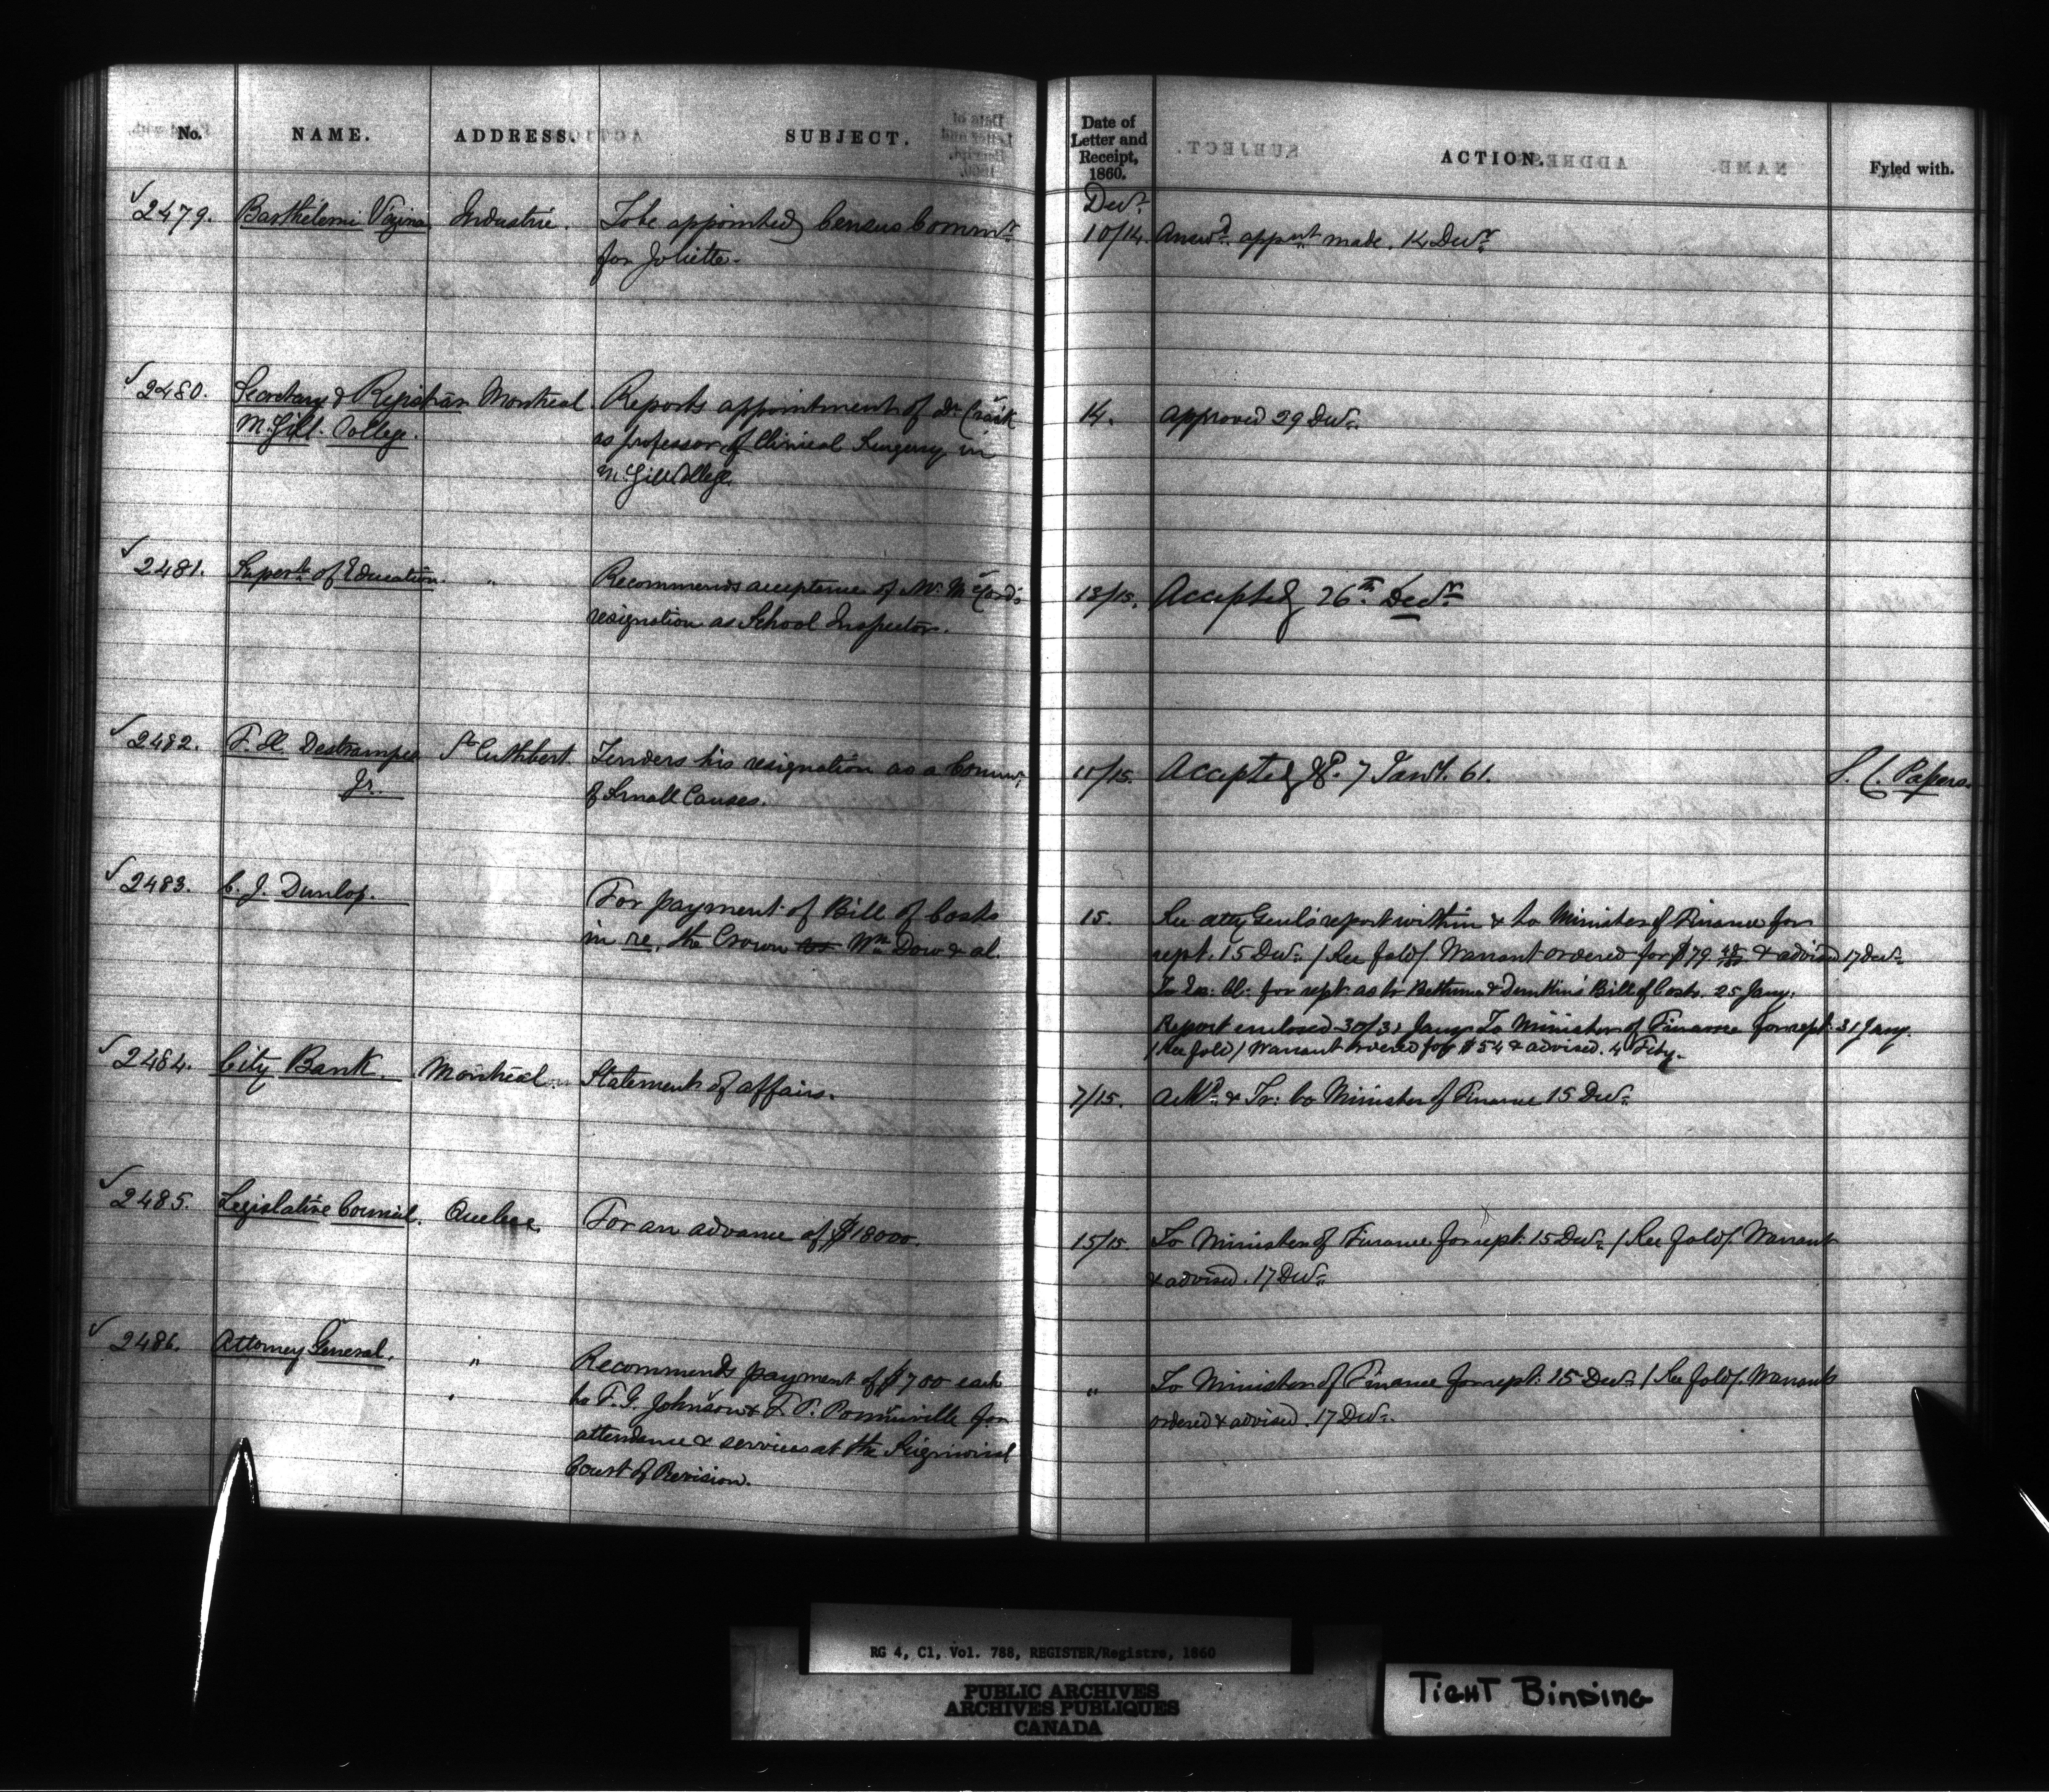 No. NAME. ADDRESS. SUBJECT. Date of Letter and Receipt, 1860. ACTION. Fyled with.
Decr.
2479. Barthelemi Vezina Industrie. To be appointed Census Commr. 10/14. Answd. apptmt made. 14 Decr.
for Joliette.
2480. Secretary & Registrar Montreal. Reports appointment of Dr. Craik 14. Approved 29 Decr.
McGill College. as professor of Clinical Surgery in
McGill College
2481. Supert. of Education. " Recommends acceptance of Mr. McCord's 13/15. Accepted 26th. Decr.
resignation as School Inspector.
2482. F. H. Destrampes St. Cuthbert. Tenders his resignation as a Commr. 11/15. Accepted 7 Jany. 61. S. C. Papers.
Jr. of Small Causes.
2483. C. J. Dunlop. For payment of Bill of Costs 15. See atty Genl's report within & to Minister of Finance for
in re. the Crown vs Wm. Dow & al. rept. 15 Decr. / See fold/. Warrant ordered for $79 & advised 17 Decr.
To Ex: Cl: for rept. as to Bethune & Dunkin's Bill of Costs. 25 Jany.
Report enclosed 30/31 Jany. To Minister of Finance for rept. 31 Jany.
/See fold/ Warrant ordered for $54 & advised. 4 Feby.
2484. City Bank. Montreal. Statement of affairs. 7/15. Ackd. & Tr: to Minister of Finance 15 Decr.
2485. Legislative Council. Quebec. For an advance of $18000. 15/15. To Minister of Finance for rept. 15 Decr. / See fold/. Warrant
& advised. 17 Decr.
2486. Attorney General. " Recommends payment of $700 each " To Minister of Finance for rept. 15 Decr. / See fold/. Warrants
to F. G. Johnson & F. P. Pominville for ordered & advised. 17 Decr.
attendance & services at the Seigniorial
Court of Revision.
RG 4, C1, Vol. 788, REGISTER/Registre, 1860
PUBLIC ARCHIVES
ARCHIVES PUBLIQUES
CANADA
TIGHT BINDING